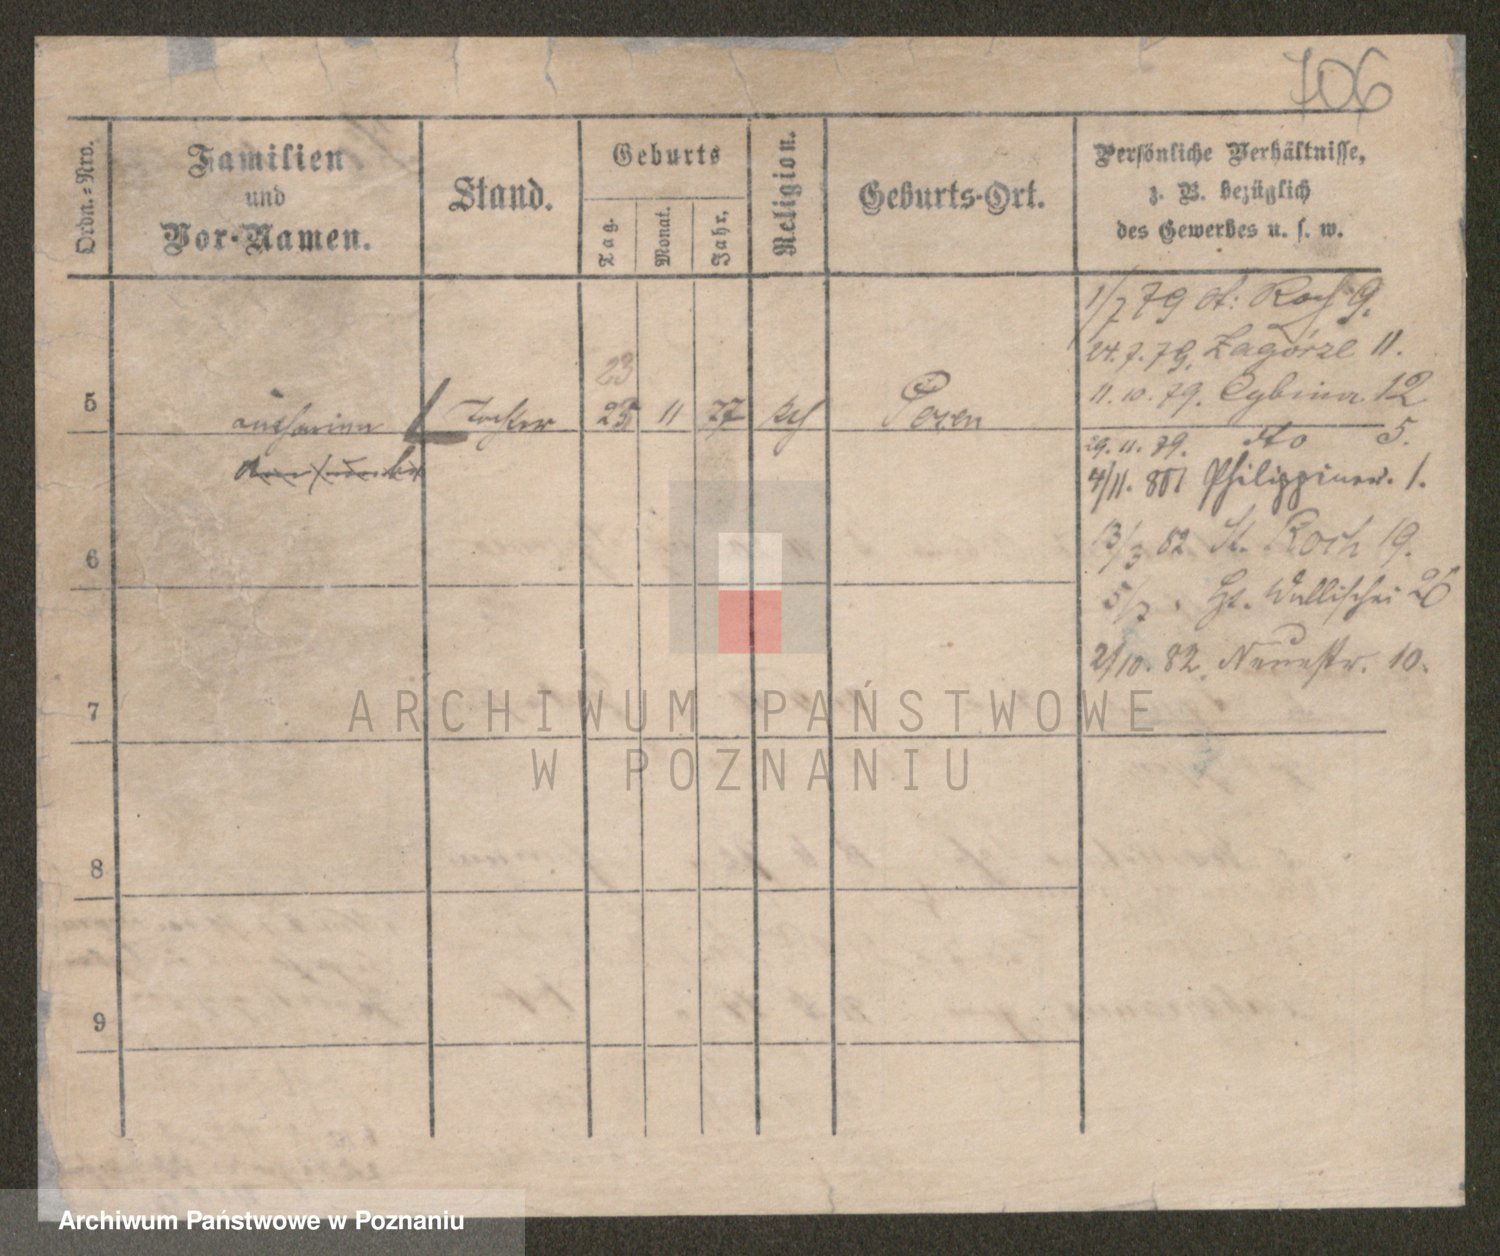 706
Ordn.=Nro.
Familien
und
Vor-Namen.
Stand.
Geburts
Tag.
Monat.
Jahr.
Religion.
Geburts-Ort.
Persönliche Verhältnisse,
z. B. bezüglich
des Gewerbes u. s. w.
1/7 79 St: Roch 9.
24.7.79. Zagórze 11.
11.10.79. Cybina 12
29.11.79. dto 5.
4/11. 80 Philippinen. 1.
13/3 82 St. Roch 19.
5/7 " Wallischei 26
2/10. 82. Neuestr. 10.
23
5 Catharina Tochter 25 11 77 kth Posen
6
7
8
9
ARCHIWUM PAŃSTWOWE
W POZNANIU
Archiwum Państwowe w Poznaniu